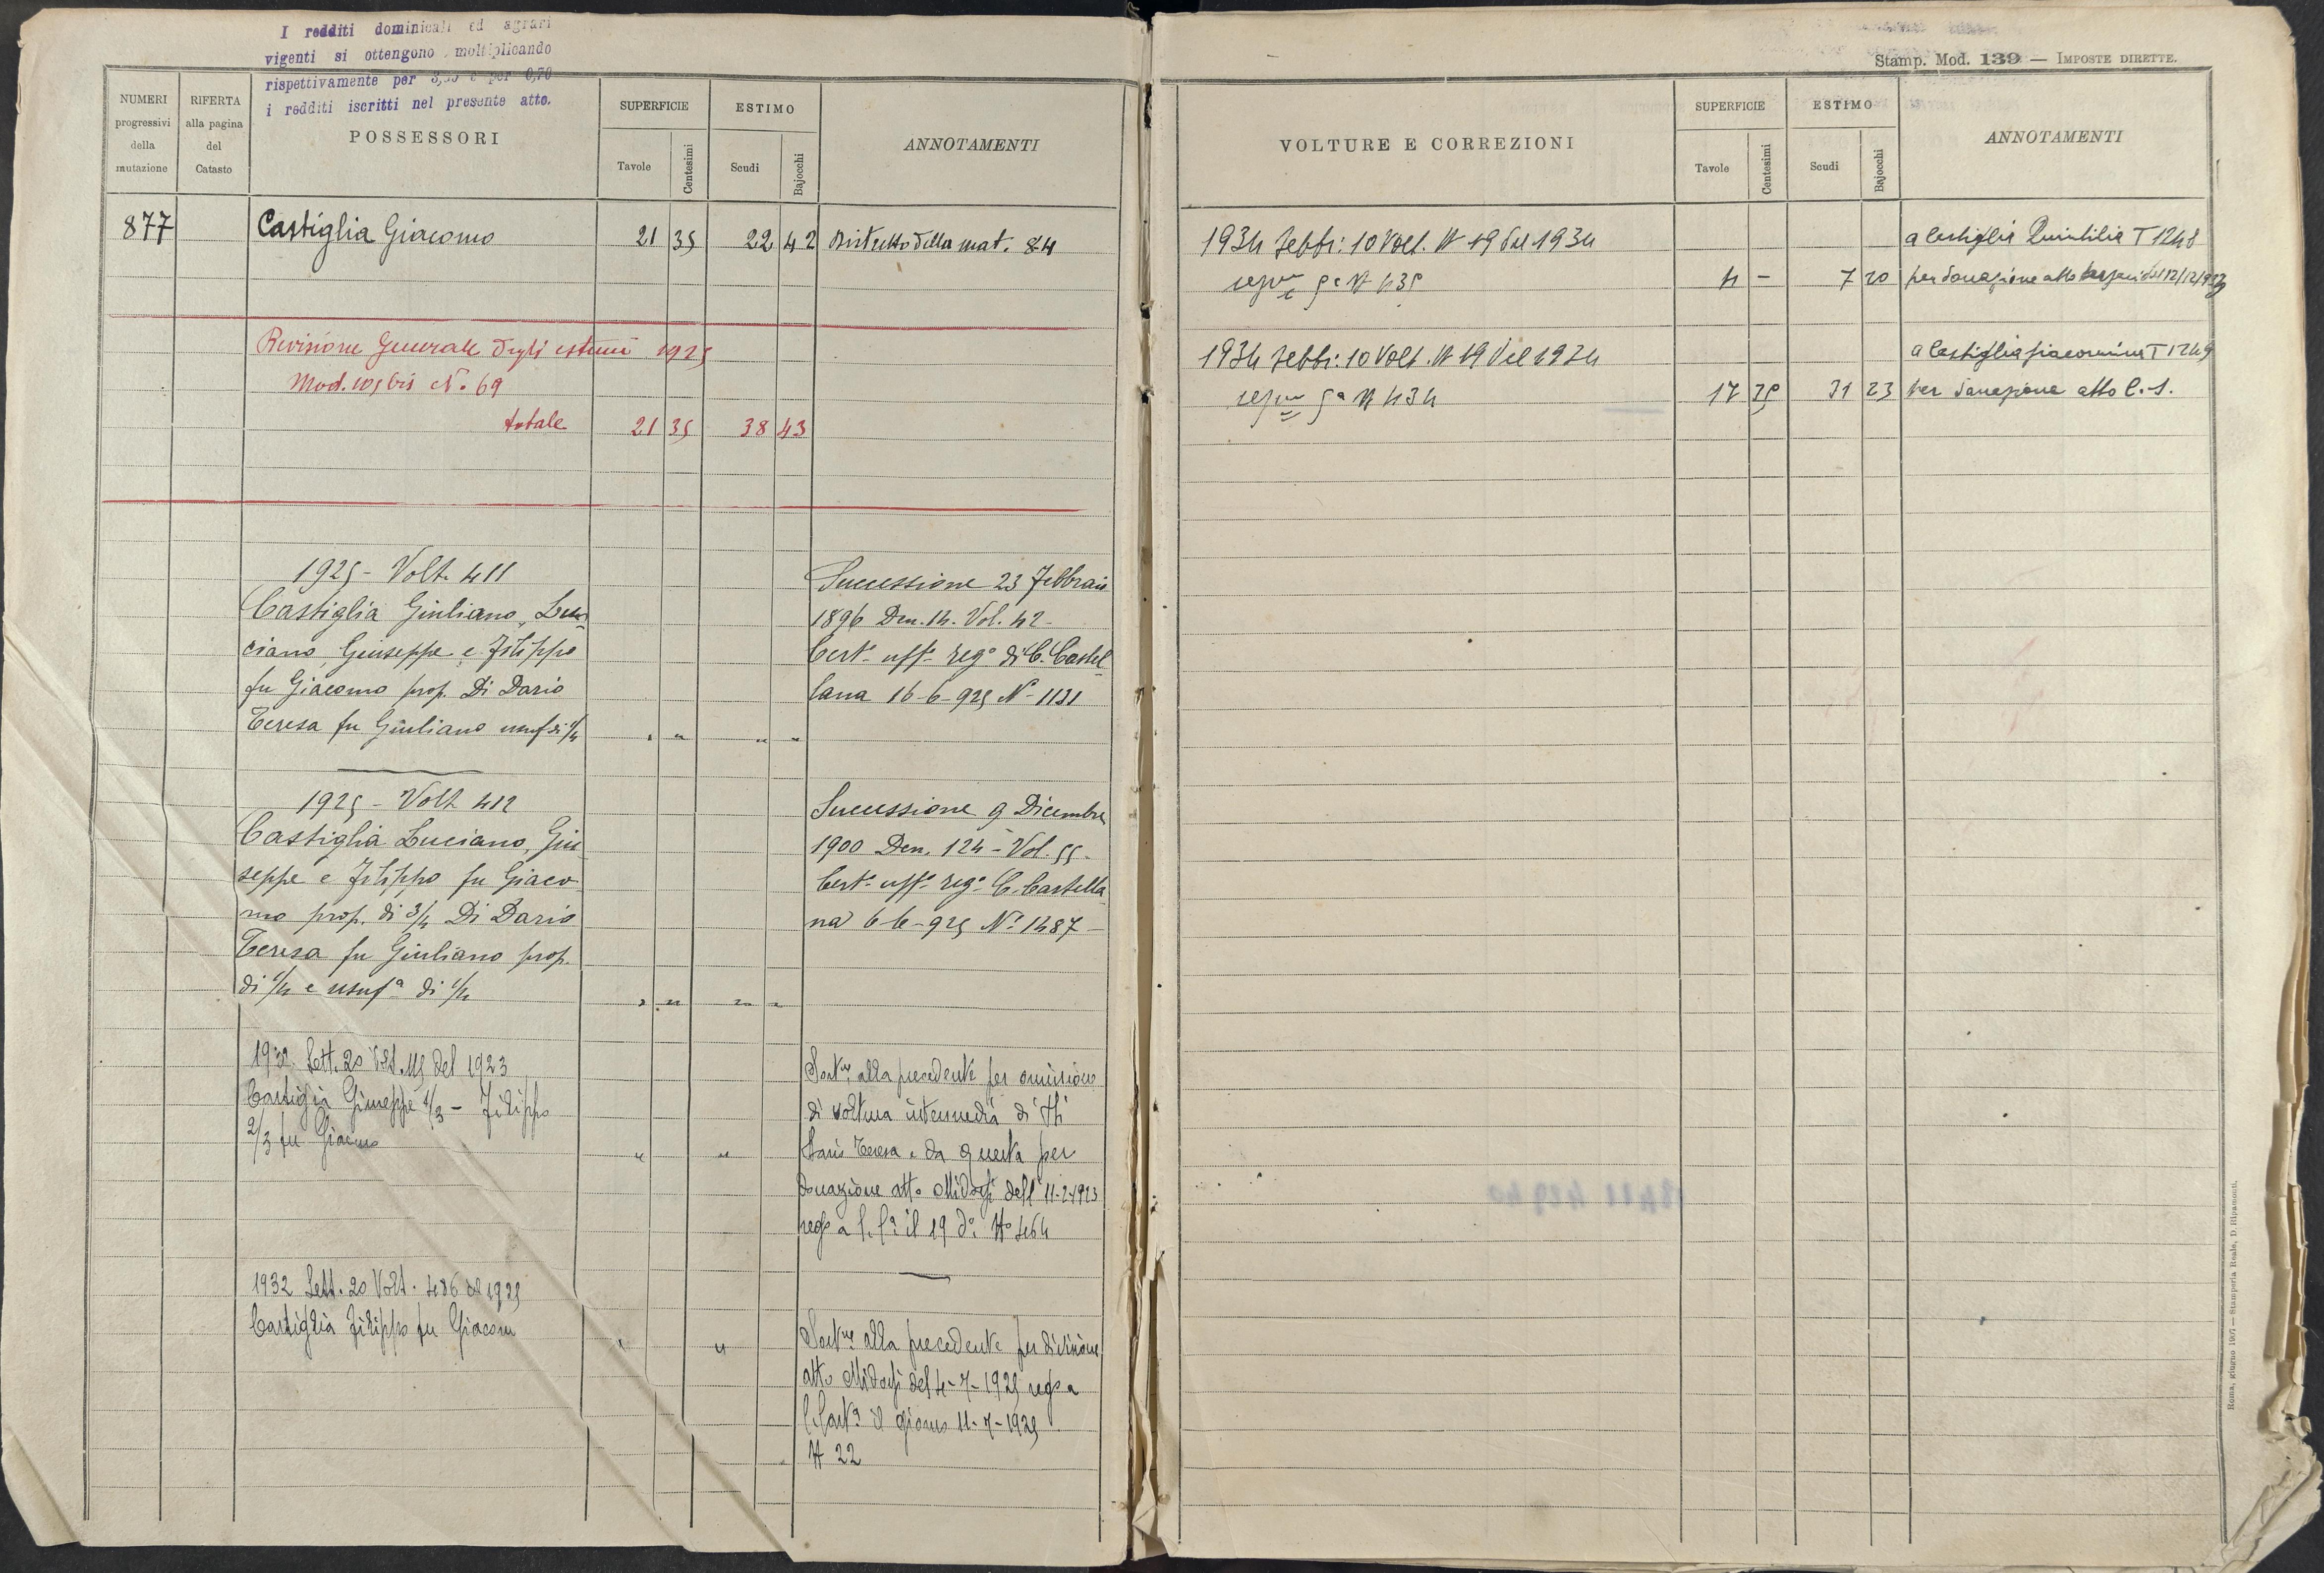 I redditi dominicali ed agrari
vigenti si ottengono moltiplicando
rispettivamente per 3,35 e per 0,70
i redditi iscritti nel presente atto.
NUMERI progressivi della mutazione
RIFERTA alla pagina del Catasto
POSSESSORI
SUPERFICIE
Tavole
Centesimi
ESTIMO
Scudi
Bajocchi
ANNOTAMENTI
877 Castiglia Giacomo 21 35 22 42 Ristretto della mat. 84
Revisione Generale degli estimi 1925
Mod. 105 bis N. 69
totale 21 35 38 43
1925 - Volt. 411
Castiglia Giuliano, Lu
ciano, Giuseppe e Filippo
fu Giacomo prop. Di Dario
Teresa fu Giuliano usuf di 1/4 " " " "
Successione 23 Febbraio
1896 Den. 14. Vol. 42 -
Cert. uff. reg.o di C. Castel
lana 16-6-925 N. 1131
1925 - Volt 412
Castiglia Luciano, Giu
seppe e Filippo fu Giaco
mo prop. di 3/4 Di Dario
Teresa fu Giuliano prop.
di 1/4 e usuf.a di 1/4 " " " "
Successione 9 Dicembre
1900 Den. 124 - Vol. 55 -
Cert. uff. reg. C. Castella
na 6-6-925 N. 1487 -
1932 Sett. 20 Volt. 115 del 1923
Castiglia Giuseppe 1/3 - Filippo
2/3 fu Giacomo " "
alla precedente per omissione
di voltura intermedia di
Teresa e da questa per
donazione atto Midossi dell' 11-2-1923
il 19 d.o N.o 464
1932 Sett. 20 Volt. 486 del 1925
Castiglia Filippo fu Giacomo " "
alla precedente per divisione
atto Midossi del 4-7-1925 reg.o a
il giorno 11-7-1925
N 22
Stamp. Mod. 139 — IMPOSTE DIRETTE.
VOLTURE E CORREZIONI
SUPERFICIE
Tavole
Centesimi
ESTIMO
Scudi
Bajocchi
ANNOTAMENTI
1934 Febbr: 10 Volt. N 19 del 1934 a Castiglia Quintilia T 1248
N 435 4 - 7 20 per donazione atto del 12/12/933
1934 Febbr: 10 Volt. N 19 del 1934 a Castiglia Giacomina T 1249
N 434 17 35 31 23 per donazione atto C. S.
Roma, giugno 1907 — Stamperia Reale, D. Ripamonti.